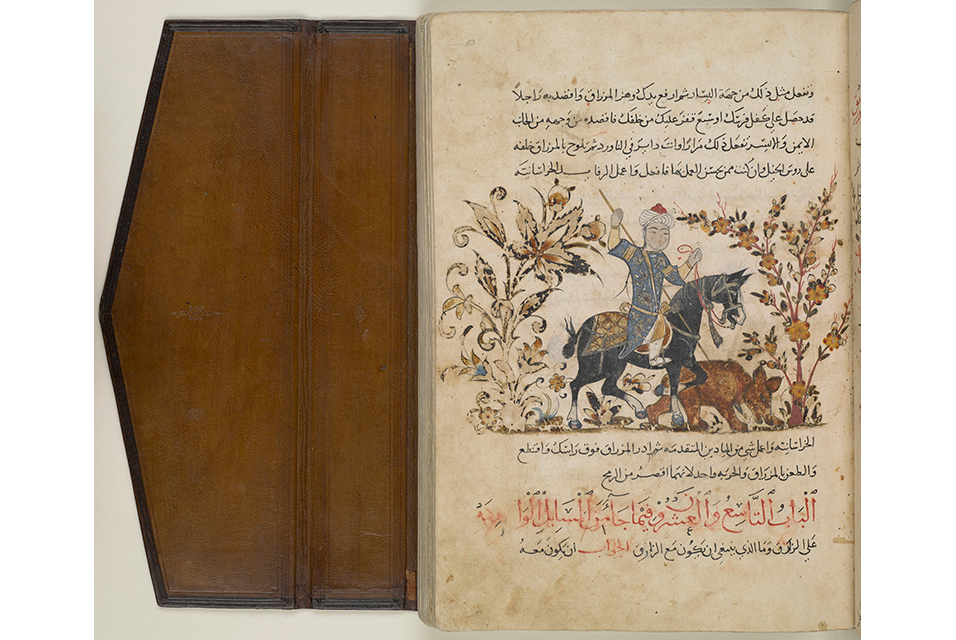 113
ونفعل مثل ذلك من جهة اليسار ثم ارفع يدك وهز المزراق واقصد به راجلا
قد حصل على كفل فرسك اوسبع قفز عليك من خلفك فاقصده من وجهه من الجانب
الايمن والايسر تفعل ذلك مرارا وانت داير في الناورد ثم تلوح بالمزراق خلفه
على روس الخيل وان كنت ممن يحسن العمل بها فافعل واعمل الرقا الخراسانية
الخراسانية واعمل شي من الميادين المتقدمه ثم ادر المزراق فوق راسك واقتطع
والطعن بالمزراق والحربه واحد لانهما اقصر من الرمح
الباب التاسع والعشرون فيما جاء من المسايل الوا
على الزراق وما الذي ينبغي ان يكون مع الزراق الجواب ان يكون معه